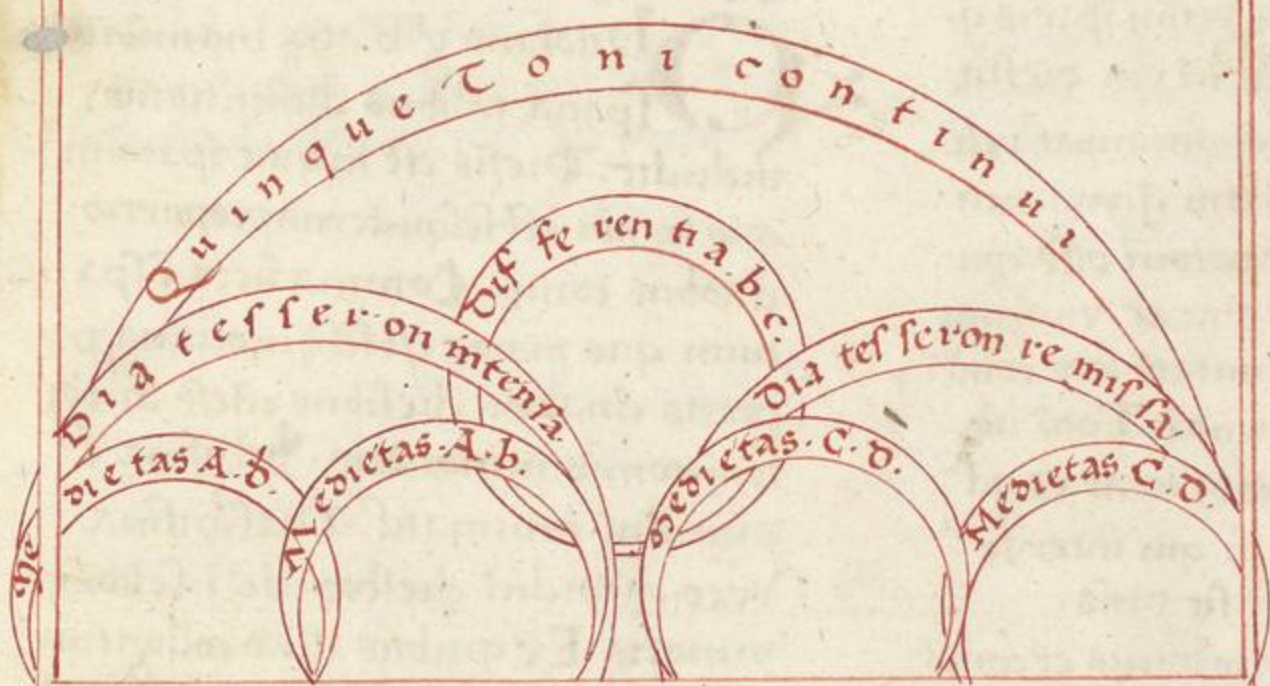 Quinque Toni continui
Differentia.b.c.
Diatesseron intensa.
Dia tesseron remissa.
Medietas A.d.
Medietas.A.b.
Medietas.C.D.
Medietas C.D.